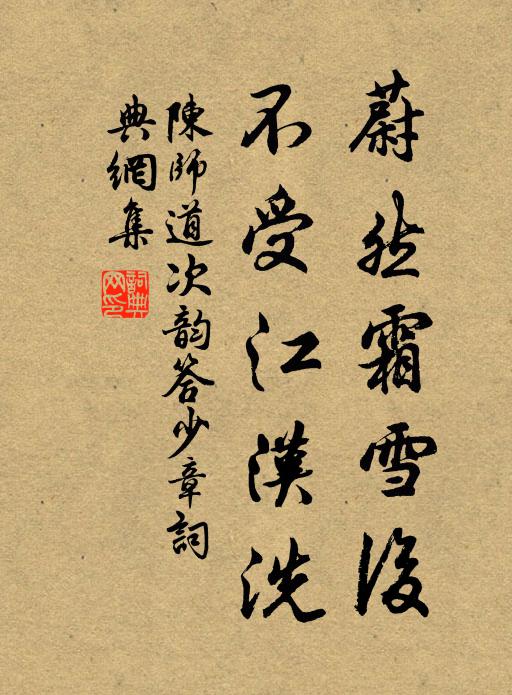 蔚然霜雪後
不受江漢洗
陳師道次韵答少章詞
典網集
詞典网印